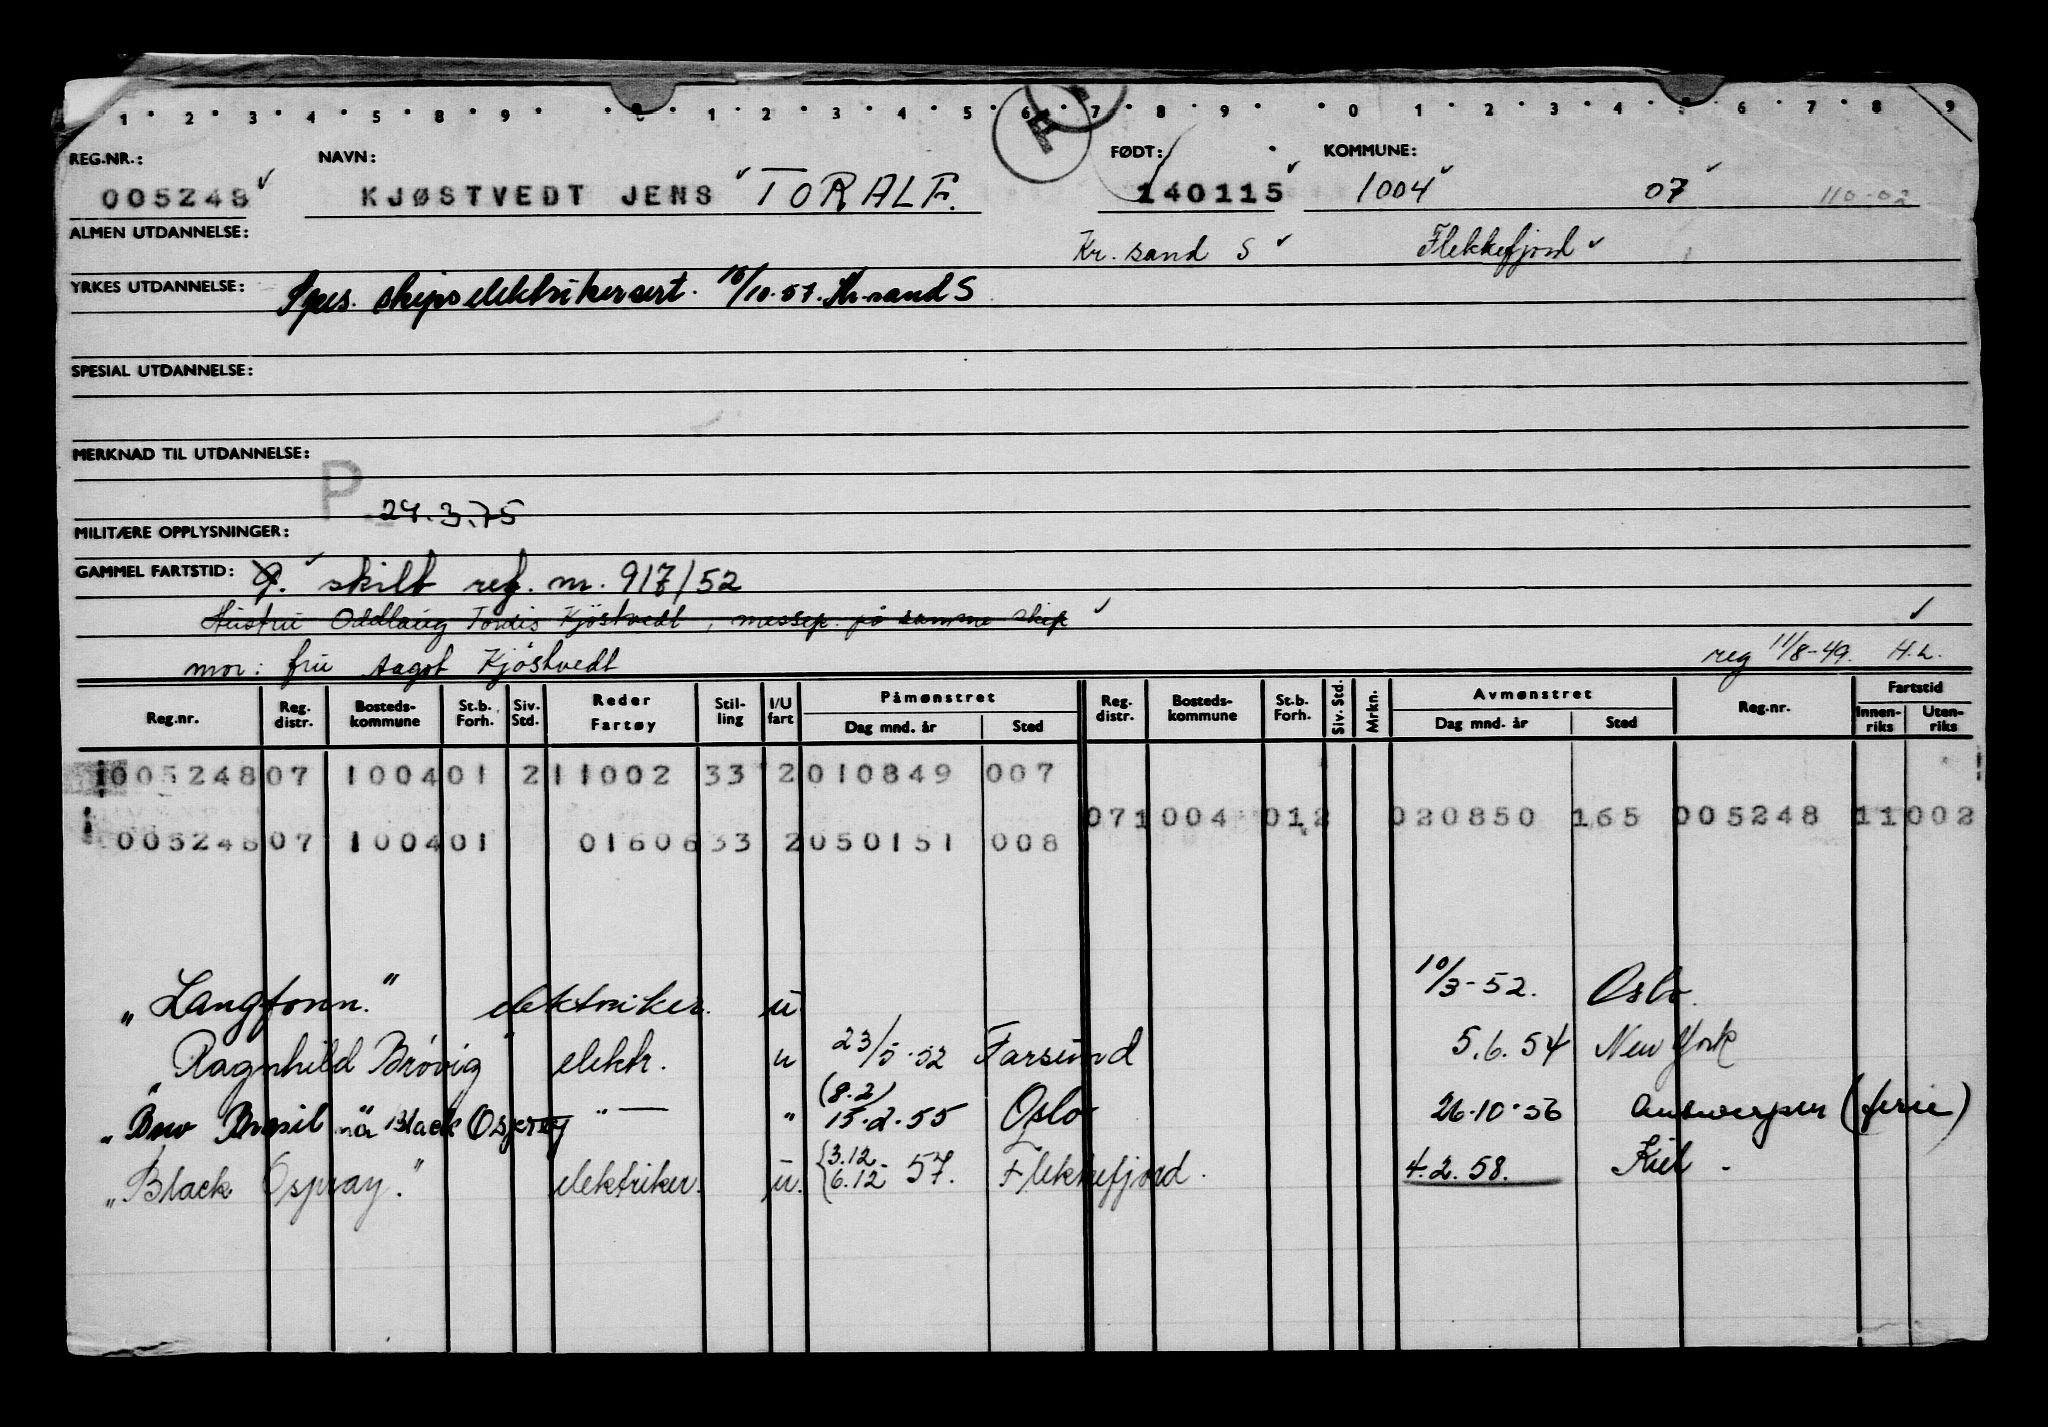 1 2 3 4 5 8 9 1 2 3 4 5 6 7 8 9 0 1 2 3 4 5 6 7 8 9
REG.NR.: NAVN: FØDT: KOMMUNE:
005248 KJØSTVEDT JENS TORALF. 140115 1004 07 110-02
ALMEN UTDANNELSE: Kr. sand S Flekkefjord
YRKES UTDANNELSE: Spes. skipselektrikersert. 10/10.57. Kr.sand S
SPESIAL UTDANNELSE:
MERKNAD TIL UTDANNELSE:
P
24.3.75
MILITÆRE OPPLYSNINGER:
GAMMEL FARTSTID: skilt ref. nr. 917/52
Hustru Oddlaug Tordis Kjöstvedt, messep. på samme skip
mor: fru Aagot Kjöstvedt reg 11/8-49. H.L.
Reg.nr. Reg. distr. Bosteds- kommune St.b. Forh. Siv. Std. Reder Fartøy Stil- ling I/U fart Påmønstret Dag mnd. år Sted Reg. distr. Bosteds- kommune St.b. Forh. Siv. Std. Mrkn. Avmønstret Dag mnd. år Sted Reg.nr. Fartstid Innen- riks Uten- riks
005248 07 1004 01 2 11002 33 2 010849 007
07 1004 01 2 020850 165 005248 11002
005248 07 1004 01 01606 33 2 050151 008
"Langfonn." elektriker. u 10/3-52. Oslo
"Ragnhild Brøvig" elektr. u 23/5-52 Farsund 5.6.54 New York
(8.2)
"Bow Brasil nå Black Osprey " — " 15.2.55 Oslo 26.10.56 Antwerpen (ferie)
"Black Ospray." elektriker. u. {3.12 6.12 57. Flekkefjord. 4.2.58. Kiel